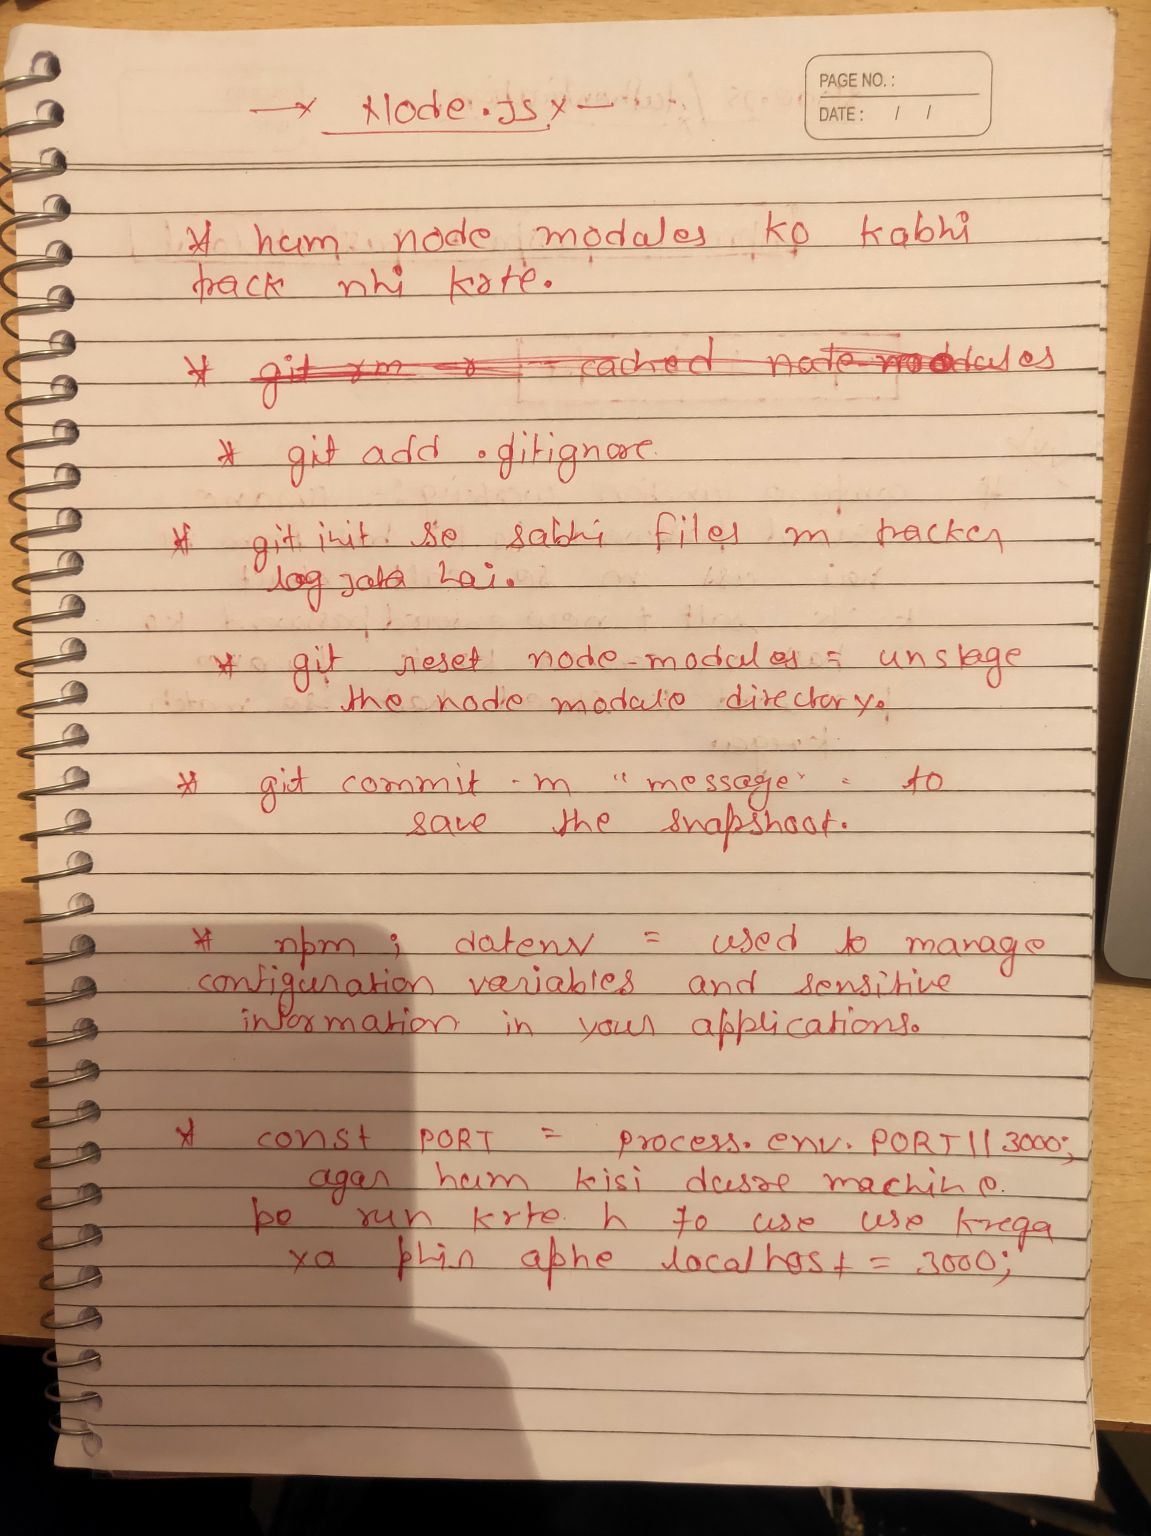 PAGE NO. :
DATE : / /
→x Node.JS x—
* ham node modales ko kabhi
track nhi krte.
* git rm -r --cached node modules
* git add .gitignore
* git init se sabhi files m tracker
log jata hai.
* git reset node-modules = unstage
the node module directory.
* git commit -m "message" = to
save the snapshoot.
* npm ; datenv = used to manage
configuration variables and sensitive
information in your applications.
* const PORT = process.env.PORT || 3000;
agar ham kisi dusre machine
pe run krte h to use use krega
ya phir apne localhost = 3000;